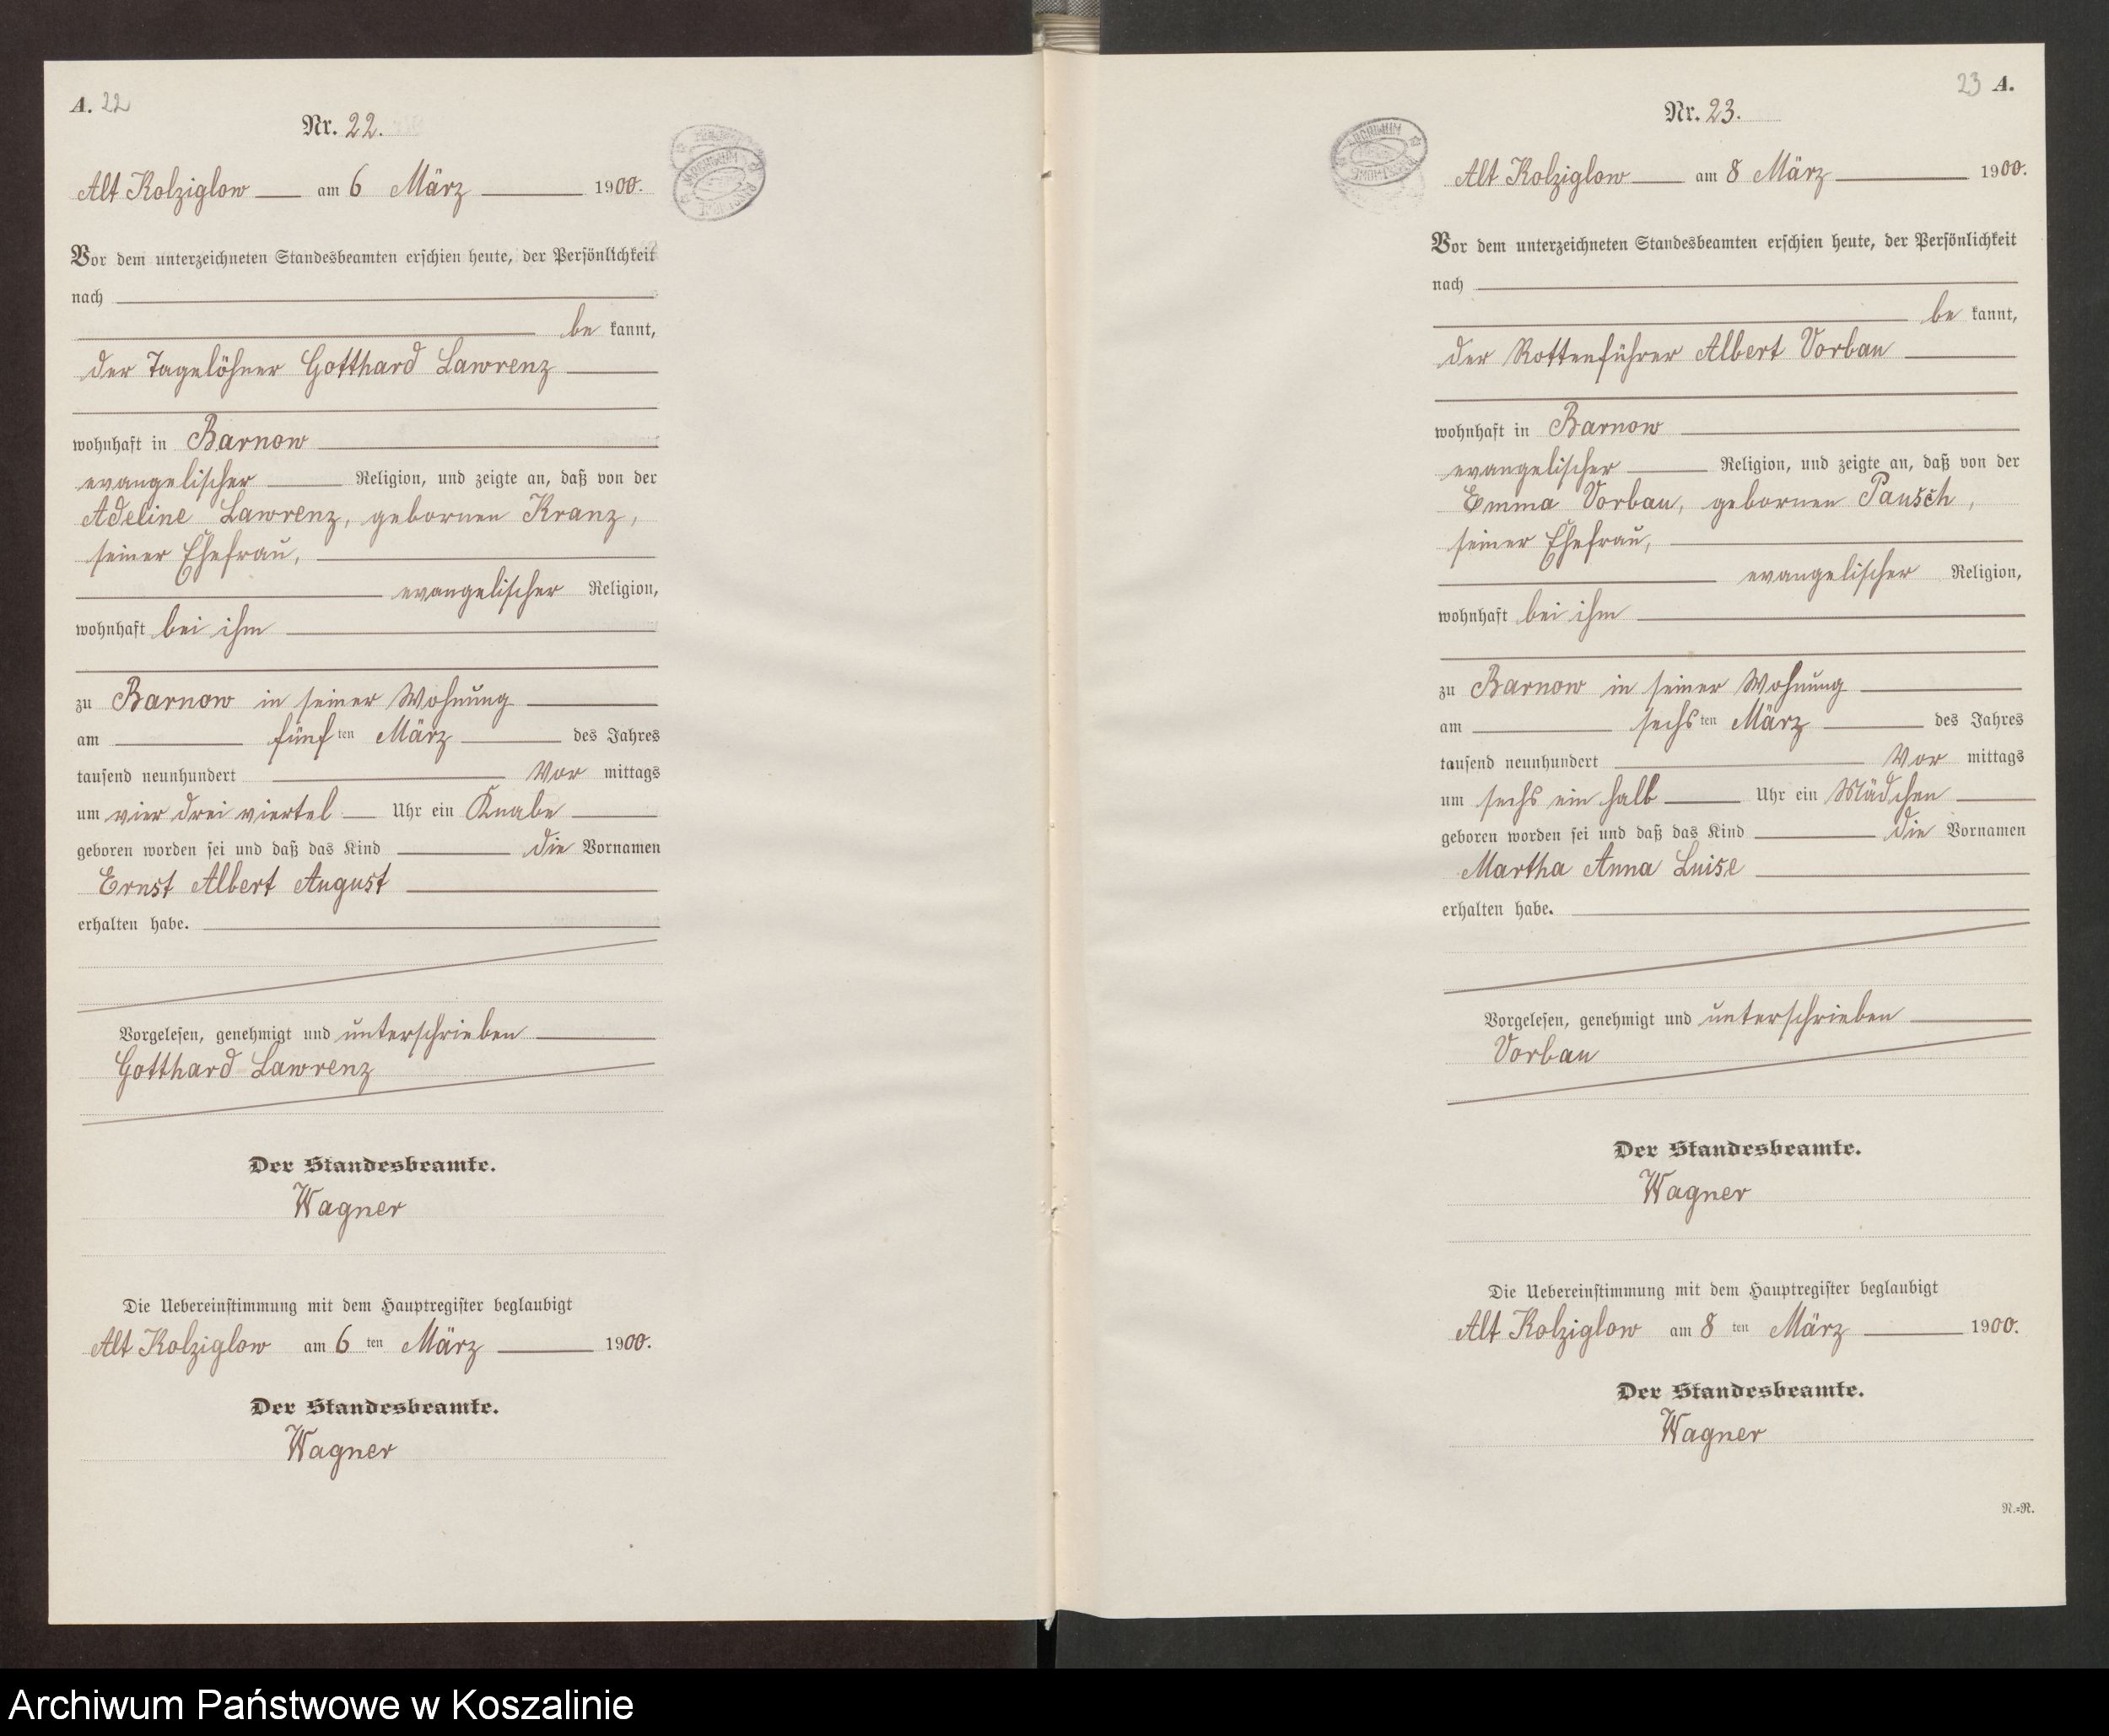 A. 22
Nr. 22.
Alt Kolziglow am 6 März 1900.
Vor dem unterzeichneten Standesbeamten erschien heute, der Persönlichkeit
nach
be kannt,
der Tagelöhner Gotthard Lawrenz
wohnhaft in Barnow
evangelischer Religion, und zeigte an, daß von der
Adeline Lawrenz, gebornen Kranz,
seiner Ehefrau,
evangelischer Religion,
wohnhaft bei ihm
zu Barnow in seiner Wohnung
am fünf ten März des Jahres
tausend neunhundert Vor mittags
um vier drei viertel Uhr ein Knabe
geboren worden sei und daß das Kind die Vornamen
Ernst Albert August
erhalten habe.
Vorgelesen, genehmigt und unterschrieben
Gotthard Lawrenz
Der Standesbeamte.
Wagner
Die Uebereinstimmung mit dem Hauptregister beglaubigt
Alt Kolziglow am 6 ten März 1900.
Der Standesbeamte.
Wagner
23 A.
Nr. 23.
Alt Kolziglow am 8 März 1900.
Vor dem unterzeichneten Standesbeamten erschien heute, der Persönlichkeit
nach
be kannt,
der Rottenführer Albert Vorbau
wohnhaft in Barnow
evangelischer Religion, und zeigte an, daß von der
Emma Vorbau, gebornen Pausch,
seiner Ehefrau,
evangelischer Religion,
wohnhaft bei ihm
zu Barnow in seiner Wohnung
am sechs ten März des Jahres
tausend neunhundert Vor mittags
um sechs ein halb Uhr ein Mädchen
geboren worden sei und daß das Kind die Vornamen
Martha Anna Luise
erhalten habe.
Vorgelesen, genehmigt und unterschrieben
Vorbau
Der Standesbeamte.
Wagner
Die Uebereinstimmung mit dem Hauptregister beglaubigt
Alt Kolziglow am 8 ten März 1900.
Der Standesbeamte.
Wagner
N.=R.
Archiwum Państwowe w Koszalinie